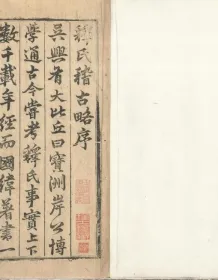 釋氏稽古略序
吳興有大比丘曰寶洲岸公博
學通古今嘗考釋氏事實上下
數千載年經而國緯著書一